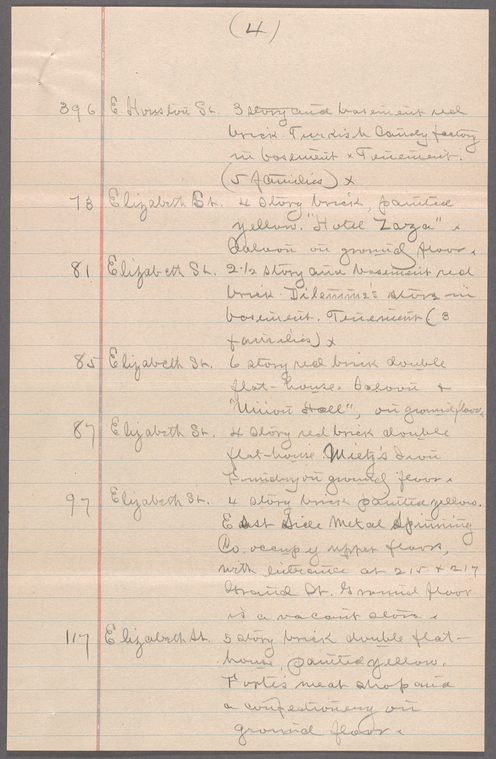 (4)
396 E Houston St. 3 story and basement red
brick Turkish Candy factory
in basement & Tenement.
(5 families) x
73 Elizabeth St. 4 story brick, painted
yellow. "Hotel Zaza" &
Saloon on ground floor.
81 Elizabeth St. 2-1/2 story and basement red
brick. Dilemma's store in
basement. Tenement (3
families) x
85 Elizabeth St. 6 story red brick double
flat-house. Saloon &
"Union Hall", on ground floor.
87 Elizabeth St. 4 story red brick double
flat-house Mietz's Iron
Foundry on ground floor.
97 Elizabeth St. 4 story brick painted yellow.
East Side Metal Spinning
Co. occupy upper floors,
with entrance at 215 & 217
Grand St. Ground floor
is a vacant store.
117 Elizabeth St 5 story brick double flat-
house, painted yellow.
Forte's meat shop and
a confectionery on
ground floor.